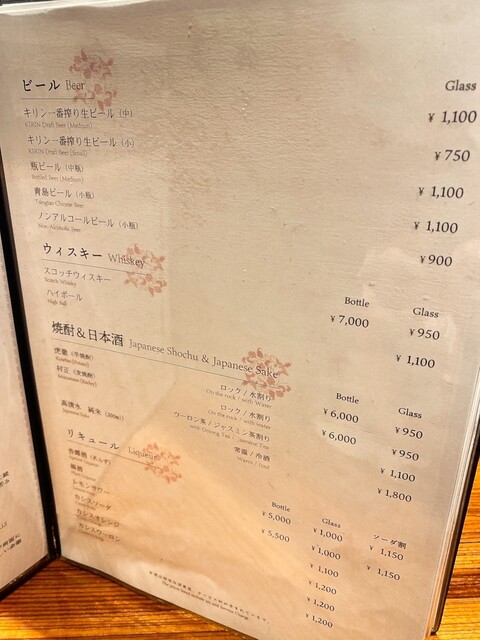 ビール Beer
Glass
キリン一番搾り生ビール（中） ¥ 1,100
KIRIN Draft Beer (Medium)
キリン一番搾り生ビール（小） ¥ 750
KIRIN Draft Beer (Small)
瓶ビール（中瓶） ¥ 1,100
Bottled Beer (Medium)
青島ビール（小瓶） ¥ 1,100
Tsingtao Chinese Beer
ノンアルコールビール（小瓶） ¥ 900
Non Alcoholic Beer
ウィスキー Whiskey
Bottle Glass
スコッチウィスキー ¥ 7,000 ¥ 950
Scotch Whisky
ハイボール ¥ 1,100
High Ball
焼酎＆日本酒 Japanese Shochu & Japanese Sake
Bottle Glass
ロック / 水割り ¥ 6,000 ¥ 950
On the rock / with Water
村正（麦焼酎） ロック / 水割り ¥ 6,000 ¥ 950
On the rock / with water
ウーロン茶 / ジャスミン茶割り ¥ 1,100
with Oolong Tea / Jasmine Tea
高清水 純米 常温 / 冷酒 ¥ 1,800
Japanese Sake
リキュール Liqueur
Bottle Glass ソーダ割
¥ 5,000 ¥ 1,000 ¥ 1,150
¥ 5,500 ¥ 1,000 ¥ 1,150
レモンサワー ¥ 1,100
カシスソーダ ¥ 1,200
カシスオレンジ ¥ 1,200
カシスウーロン ¥ 1,200